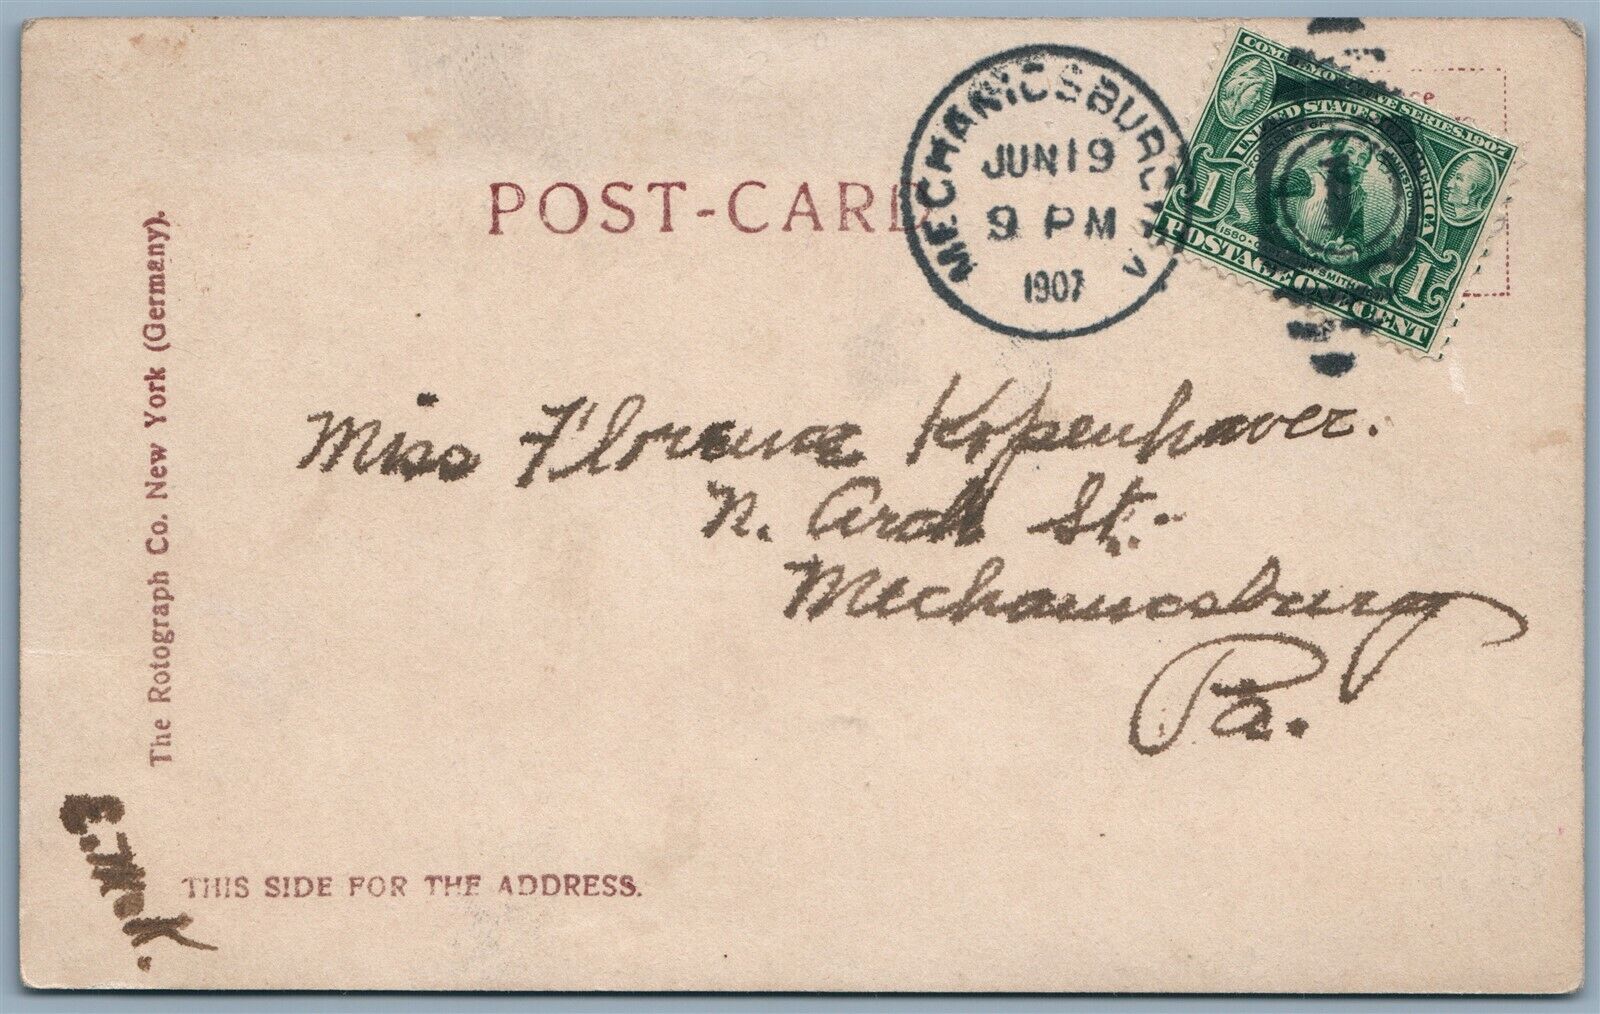 POST-CARD
MECHANICSBURG, PA
JUN 19
9 PM
1907
COMMEMORATIVE SERIES, 1907
UNITED STATES OF AMERICA
1
1
1580
SMITH
POSTAGE ONE CENT
1
Miss Florence Kopenhaver.
N. Arch St.
Mechanicsburg
Pa.
The Rotograph Co. New York (Germany).
E. M. K.
THIS SIDE FOR THE ADDRESS.